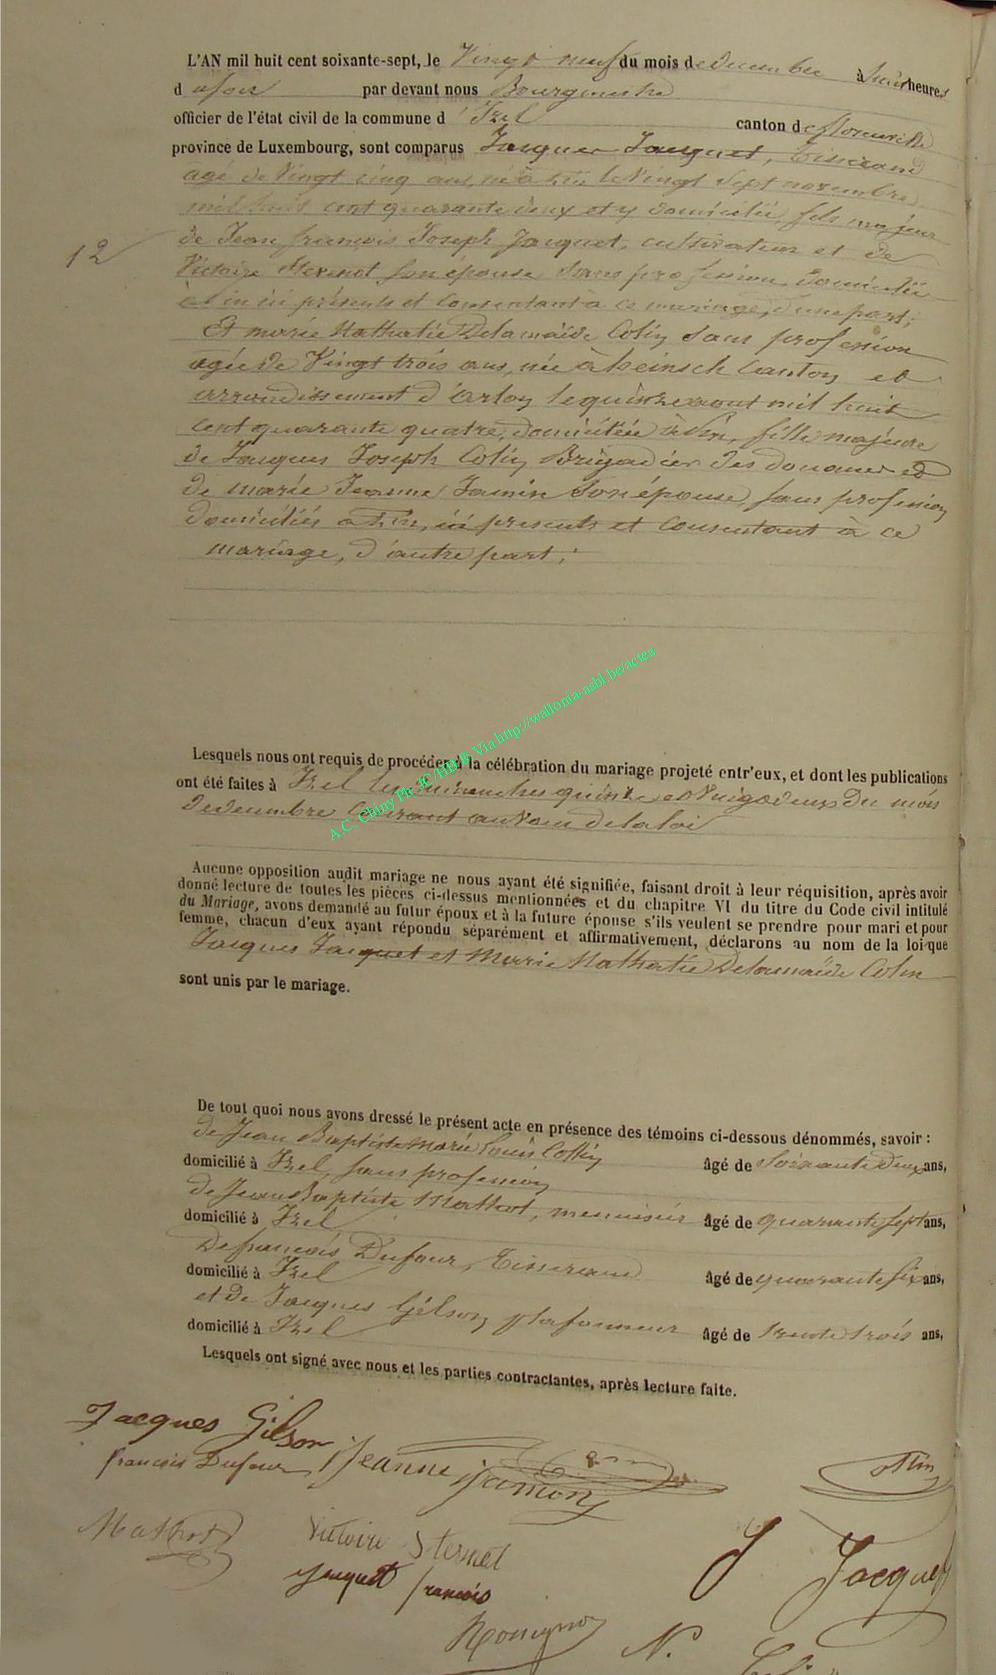 L'AN mil huit cent soixante-sept, le Vingt neuf du mois de decembre à huit heures
d u soir par devant nous Bourgmestre
officier de l'état civil de la commune d' Izel canton de florenville
province de Luxembourg, sont comparus Jacques Jacquet, Tisserand
agé de Vingt cinq ans, né à le Vingt Sept novembre
mil huit cent quarante deux et y domicilié, fils majeur
12
de Jean françois Joseph Jacquet, cultivateur et de
Victoire Son épouse Sans profession domiciliés
ici présents et Consentant à ce mariage, d'une part;
Et marie Nathalie Delamaïde Colin Sans profession
agée de Vingt trois ans, née à heinsch Canton et
arrondissement d'arlon le quinze aout mil huit
cent quarante quatre, domiciliée à fille majeure
de Jacques Joseph Colin Brigadier des douanes et
de marie Jeanne Jamin Son épouse, Sans profession
domiciliés à ici presents et Consentant à ce
mariage, d'autre part;
Lesquels nous ont requis de procéder à la célébration du mariage projeté entr'eux, et dont les publications
ont été faites à Izel les dimanches quinze et Vingt deux du mois
de decembre Courant au nom de la loi
Aucune opposition audit mariage ne nous ayant été signifiée, faisant droit à leur réquisition, après avoir
donné lecture de toutes les pièces ci-dessus mentionnées et du chapitre VI du titre du Code civil intitulé
du Mariage, avons demandé au futur époux et à la future épouse s'ils veulent se prendre pour mari et pour
femme, chacun d'eux ayant répondu séparément et affirmativement, déclarons au nom de la loi que
Jacques Jacquet et Marie Nathalie Delamaïde Colin
sont unis par le mariage.
De tout quoi nous avons dressé le présent acte en présence des témoins ci-dessous dénommés, savoir :
de Jean Baptiste Marie Louis Collin
domicilié à Izel, Sans profession âgé de Soixante deux ans,
de Jean Baptiste Mathot, menuisier
domicilié à Izel âgé de quarante sept ans,
De françois Dufour, Tisserand
domicilié à Izel âgé de quarante six ans,
et de Jacques Gilson plafonneur
domicilié à Izel âgé de trente trois ans,
Lesquels ont signé avec nous et les parties contractantes, après lecture faite.
Jacques Gilson
francois Dufour Jeanne jamon
Mathot Victoire
Jacquet francois J Jacquet
N.
A.C. Chiny Ph JC/HB® Via http://wallonia-asbl.be/actes